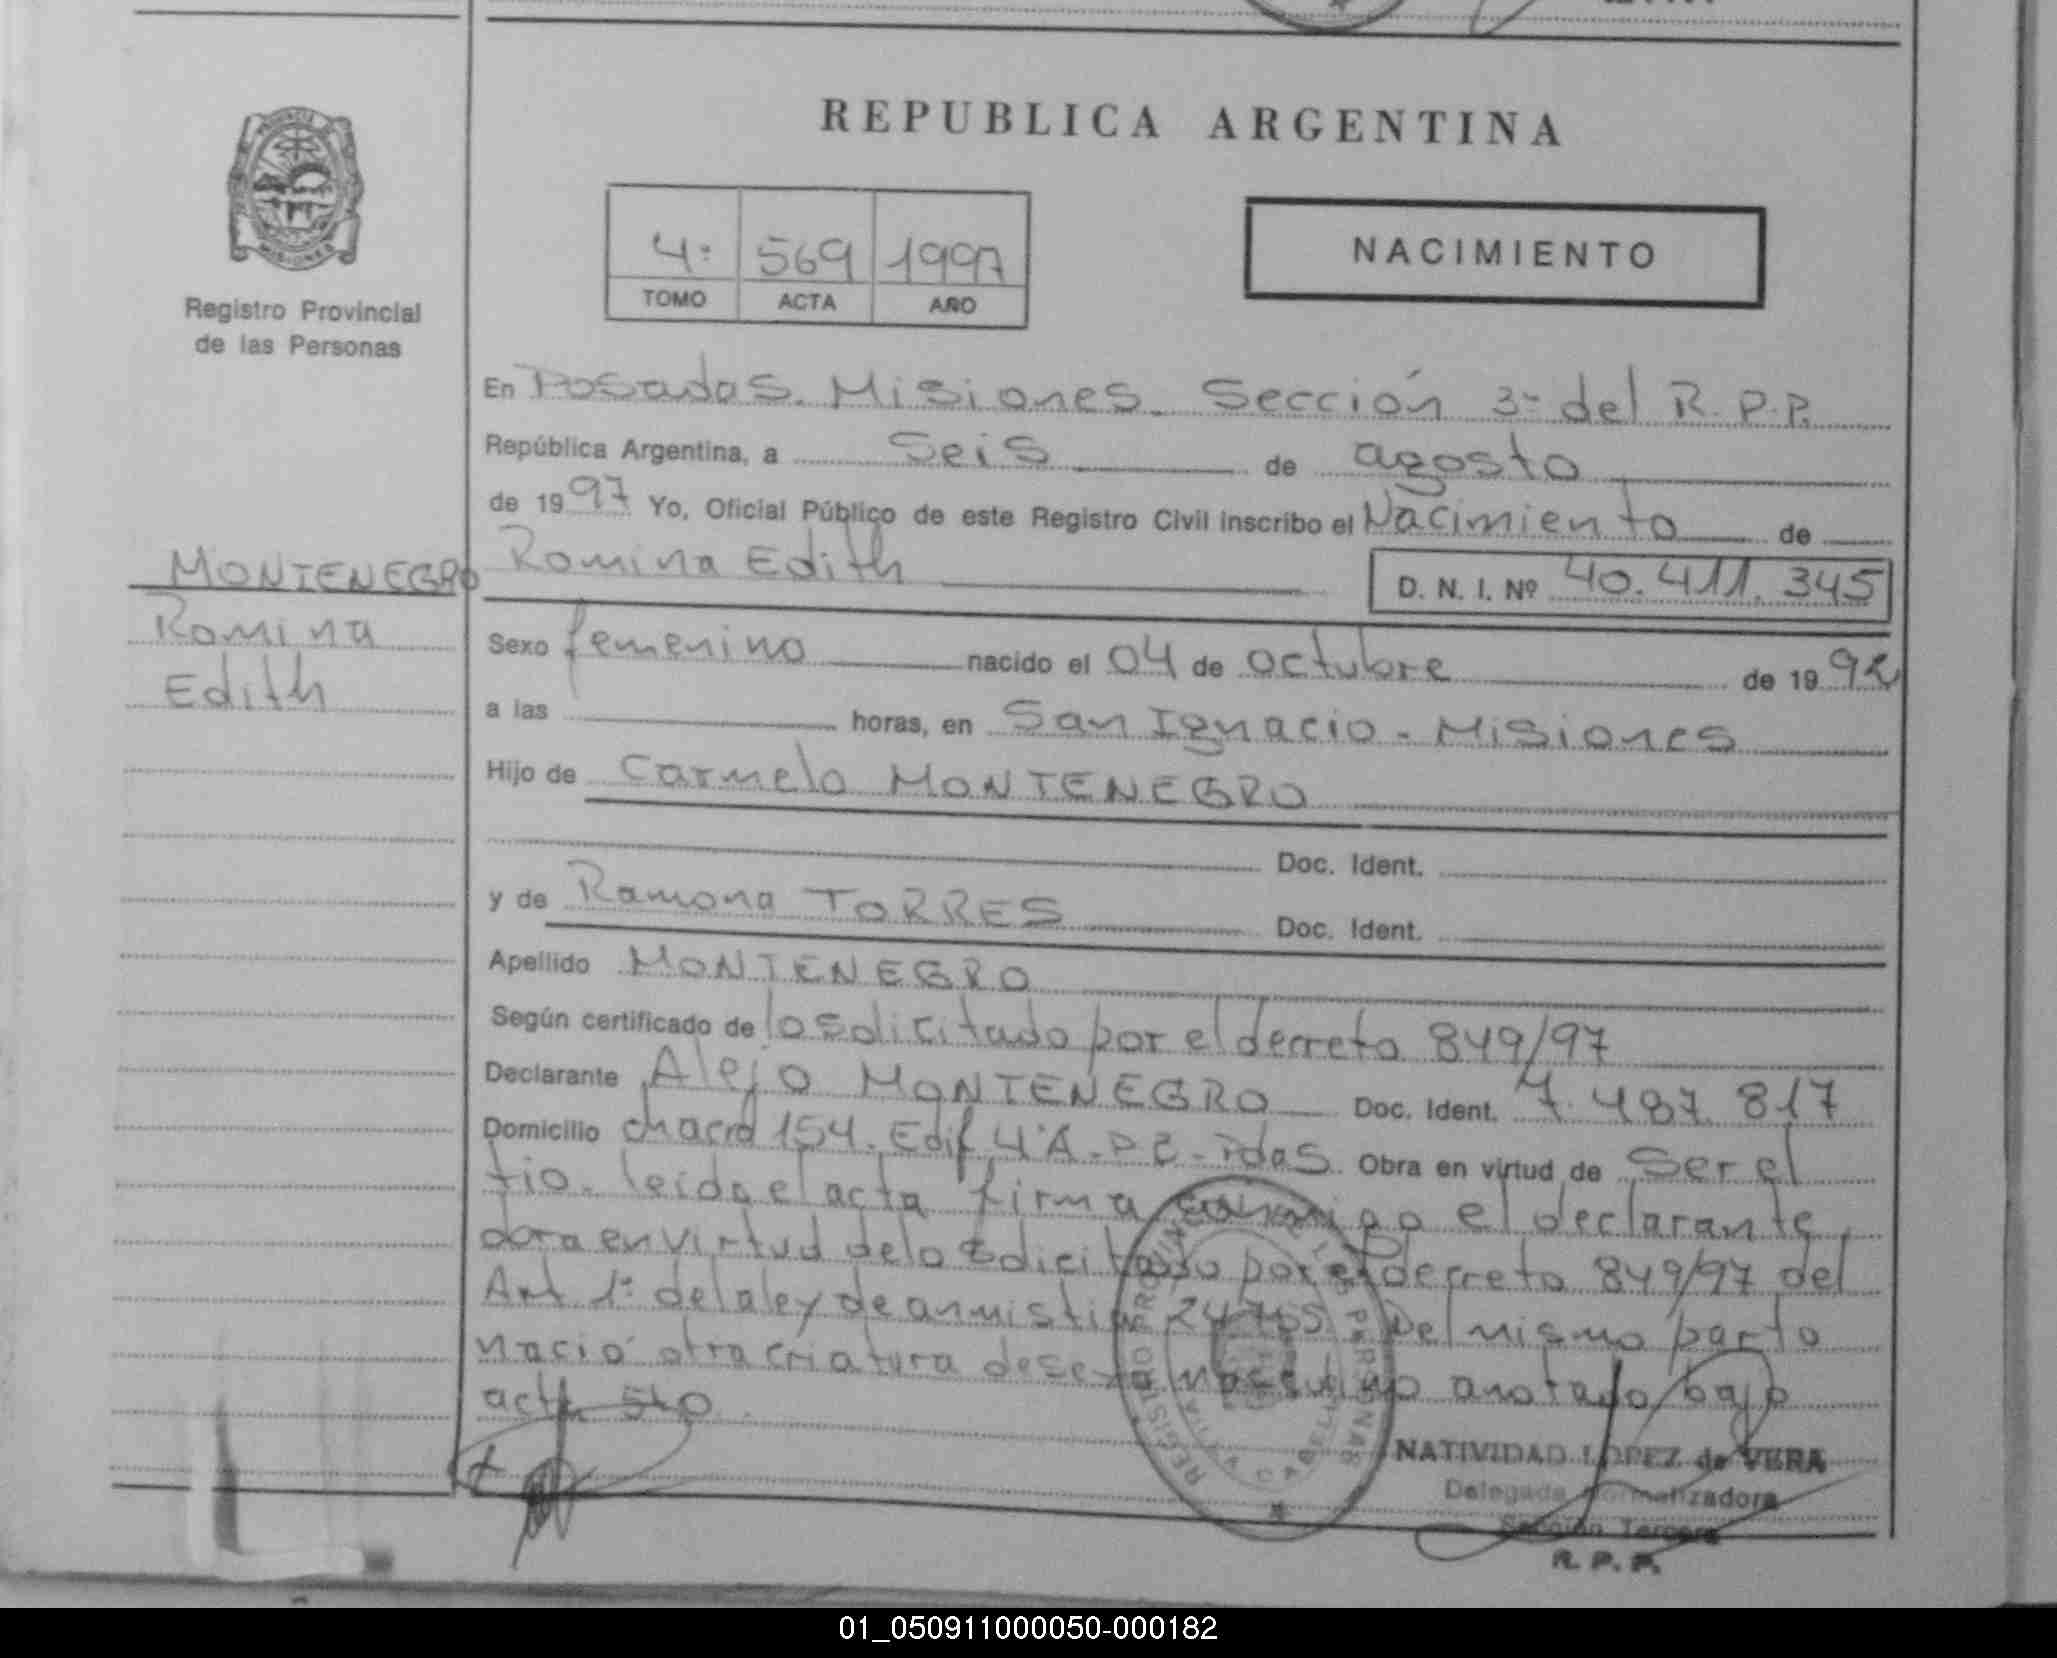 REPUBLICA ARGENTINA
PROVINCIA DE
MISIONES
Registro Provincial
de las Personas
4º 569 1997
TOMO ACTA AÑO
NACIMIENTO
En Posadas. Misiones. Sección 3º del R.P.P.
República Argentina, a seis de agosto
de 1997 Yo, Oficial Público de este Registro Civil inscribo el Nacimiento de
MONTENEGRO
Romina
Edith
Romina Edith D. N. I. Nº 40.411.345
Sexo femenino nacido el 04 de octubre de 1992
a las horas, en San Ignacio - Misiones
Hijo de Carmelo MONTENEGRO
Doc. Ident.
y de Ramona TORRES Doc. Ident.
Apellido MONTENEGRO
Según certificado de lo solicitado por el decreto 849/97
Declarante Alejo MONTENEGRO Doc. Ident. 7.487.817
Domicilio chacra 154. Edif. 4º A - Pdas. Obra en virtud de ser el
tio. leida el acta firma conmigo el declarante,
obra en virtud de lo solicitado por el decreto 849/97 del
Art 1º de la ley de amnistia 24755. Del mismo parto
nació otra criatura de sexo masculino anotado bajo
acta
REGISTRO PROVINCIAL DE LAS PERSONAS
NATIVIDAD LOPEZ de VERA
Delegada Normalizadora
Sección Tercera
R. P. P.
01_050911000050-000182